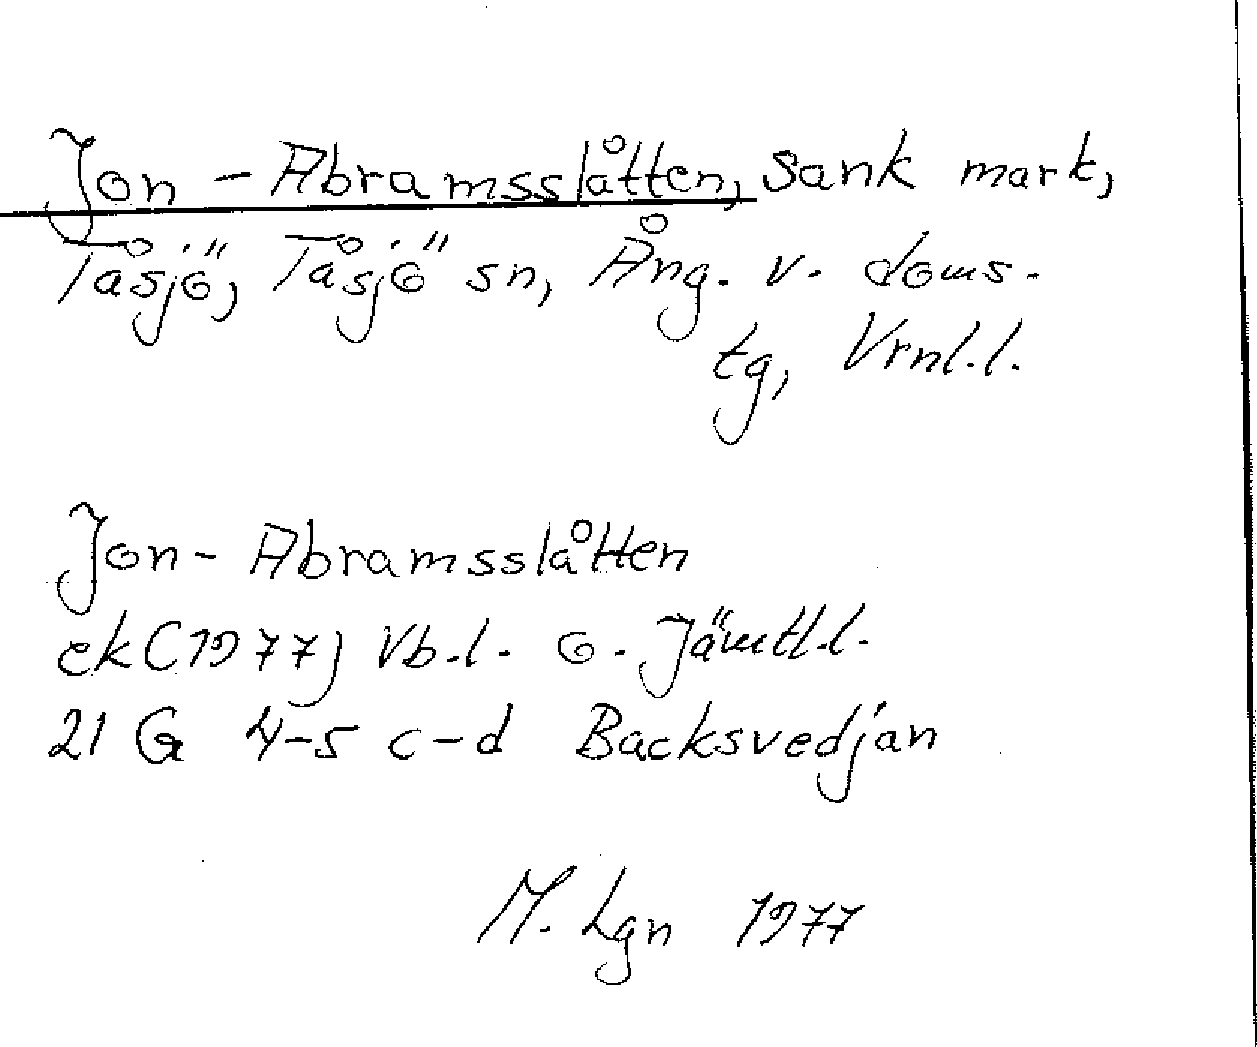 Jon-Abramsslåtten, sank mark,
Tåsjö, Tåsjö sn, Ång. v. doms-
tg, Vrnl.l.
Jon-Abramsslåtten
ek (1977) Vb.l. o. Jämtl.l.
21 G 4-5 c-d Backsvedjan
M. Lgn 1977